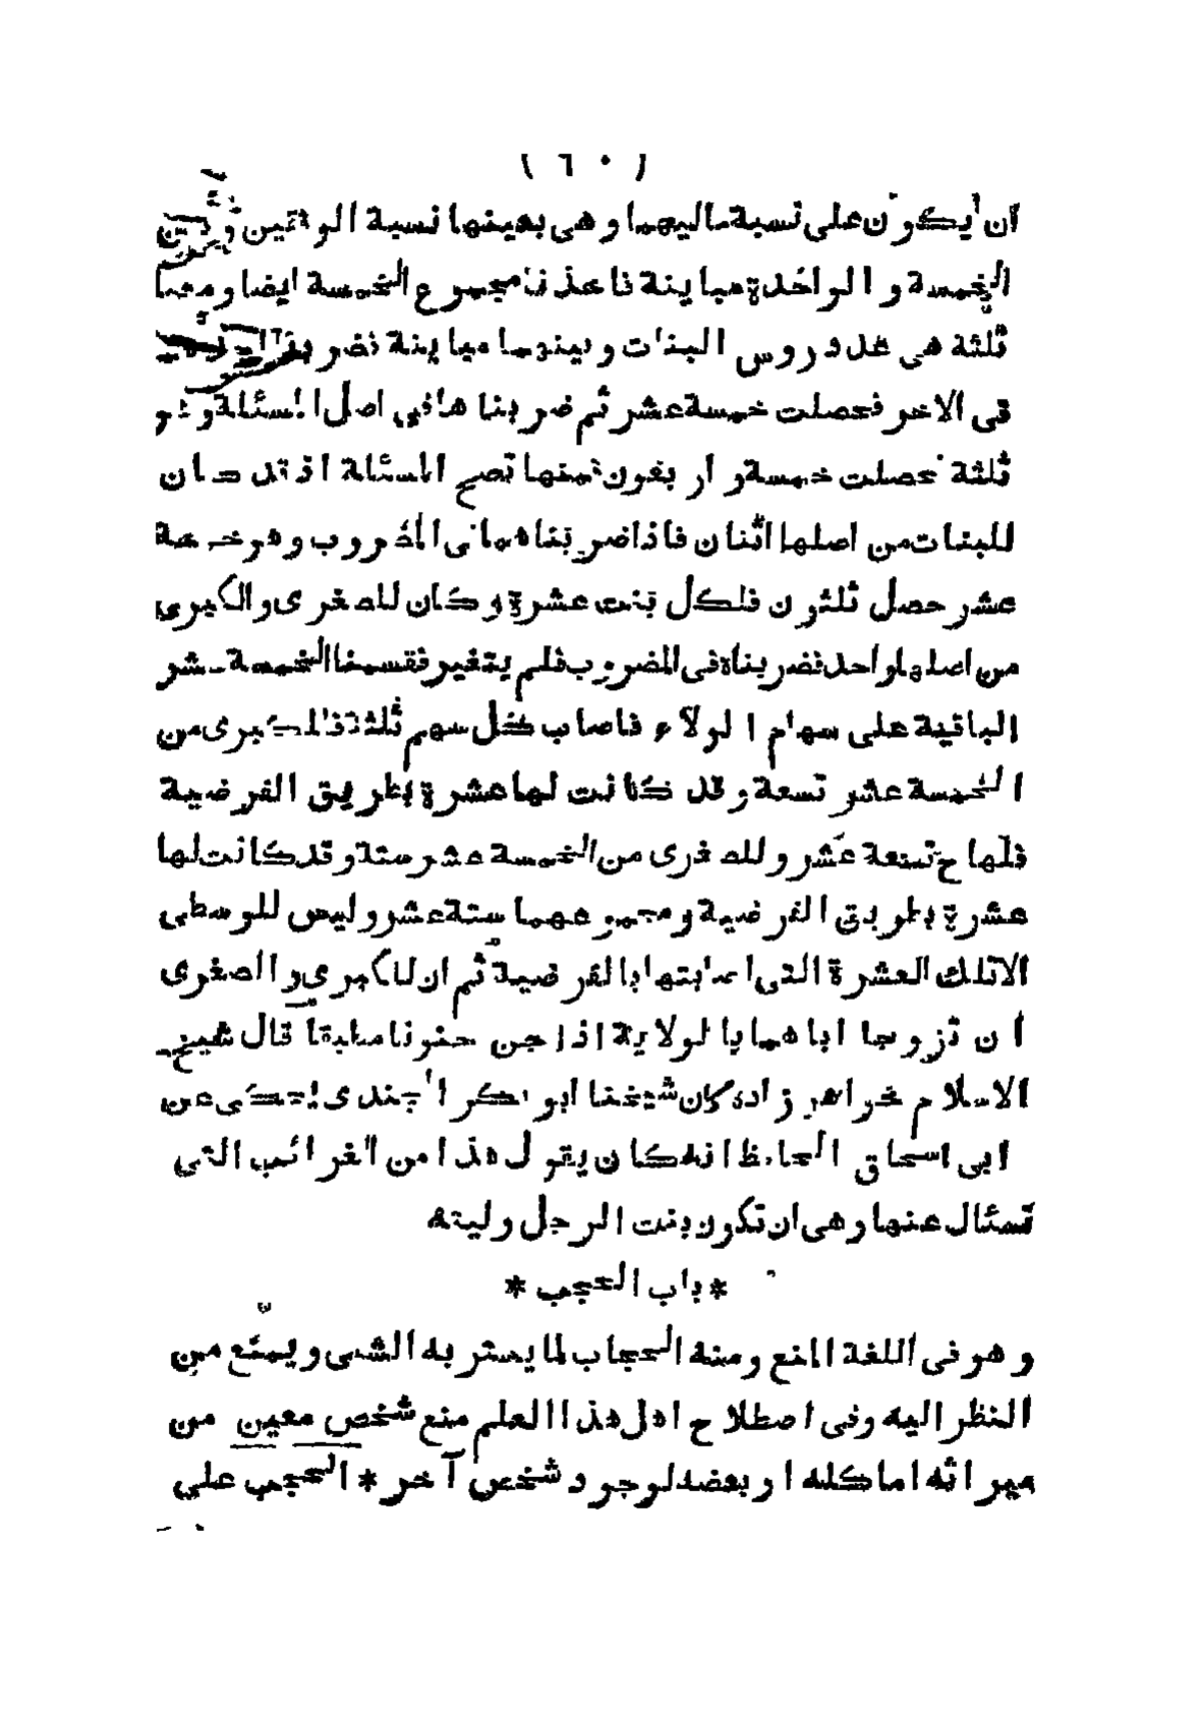 ( ٦٠ )
ان يكون على نسبة ماليهما وهى بعينها نسبة الوقتين وبين
الخمسة والواحدة مباينة فاخذنا مجموع الخمسة ايضا ومعنا
ثلثة هى عدد رؤس البنات وبينهما مباينة فضربنا
فى الاخر فحصلت خمسة عشر ثم ضربناها فى اصل المسئلة وهو
ثلثة حصلت خمسة واربعون فمنها تصح المسئلة اذ قد كان
للبنات من اصلها اثنان فاذا ضربناهما فى المضروب وهو خمسة
عشر حصل ثلثون فلكل بنت عشرة وكان للصغرى والكبرى
من اصلها واحد فضربناه فى المضروب فلم يتغير فقسمنا الخمسة عشر
الباقية على سهام الولاء فاصاب كل سهم ثلثة فللكبرى من
الخمسة عشر تسعة وقد كانت لها عشرة بطريق الفرضية
فلها ح تسعة عشر وللصغرى من الخمسة عشر ستة وقد كانت لها
عشرة بطريق الفرضية ومجموعهما ستة عشر وليس للوسطى
الا تلك العشرة التى اصابتها بالفرضية ثم ان للكبرى والصغرى
ان تزوجا اباهما بالولاية اذا جن جنونا مطبقا قال شيخ
الاسلام خواهر زاده كان شيخنا ابو بكر الجندى يحكى عن
ابى اسحاق الحافظ انه كان يقول هذا من الغرائب التى
تسئال عنها وهى ان تكون بنت الرجل وليته
* باب الحجب *
وهو فى اللغة المنع ومنه الحجاب لما يستر به الشئ ويمنع من
النظر اليه وفى اصطلاح اهل هذا العلم منع شخص معين من
ميراثه اما كله او بعضه لوجود شخص آخر * الحجب على